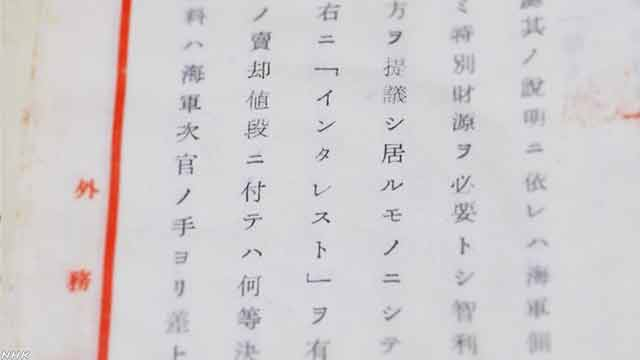 其ノ說明ニ依レハ海軍個
ミ特別財源ヲ必要トシ智利
方ヲ提議シ居ルモノニシテ
右ニ「インタレスト」ヲ有
ノ賣却値段ニ付テハ何等決
料ハ海軍次官ノ手ヨリ差上
外務
NHK